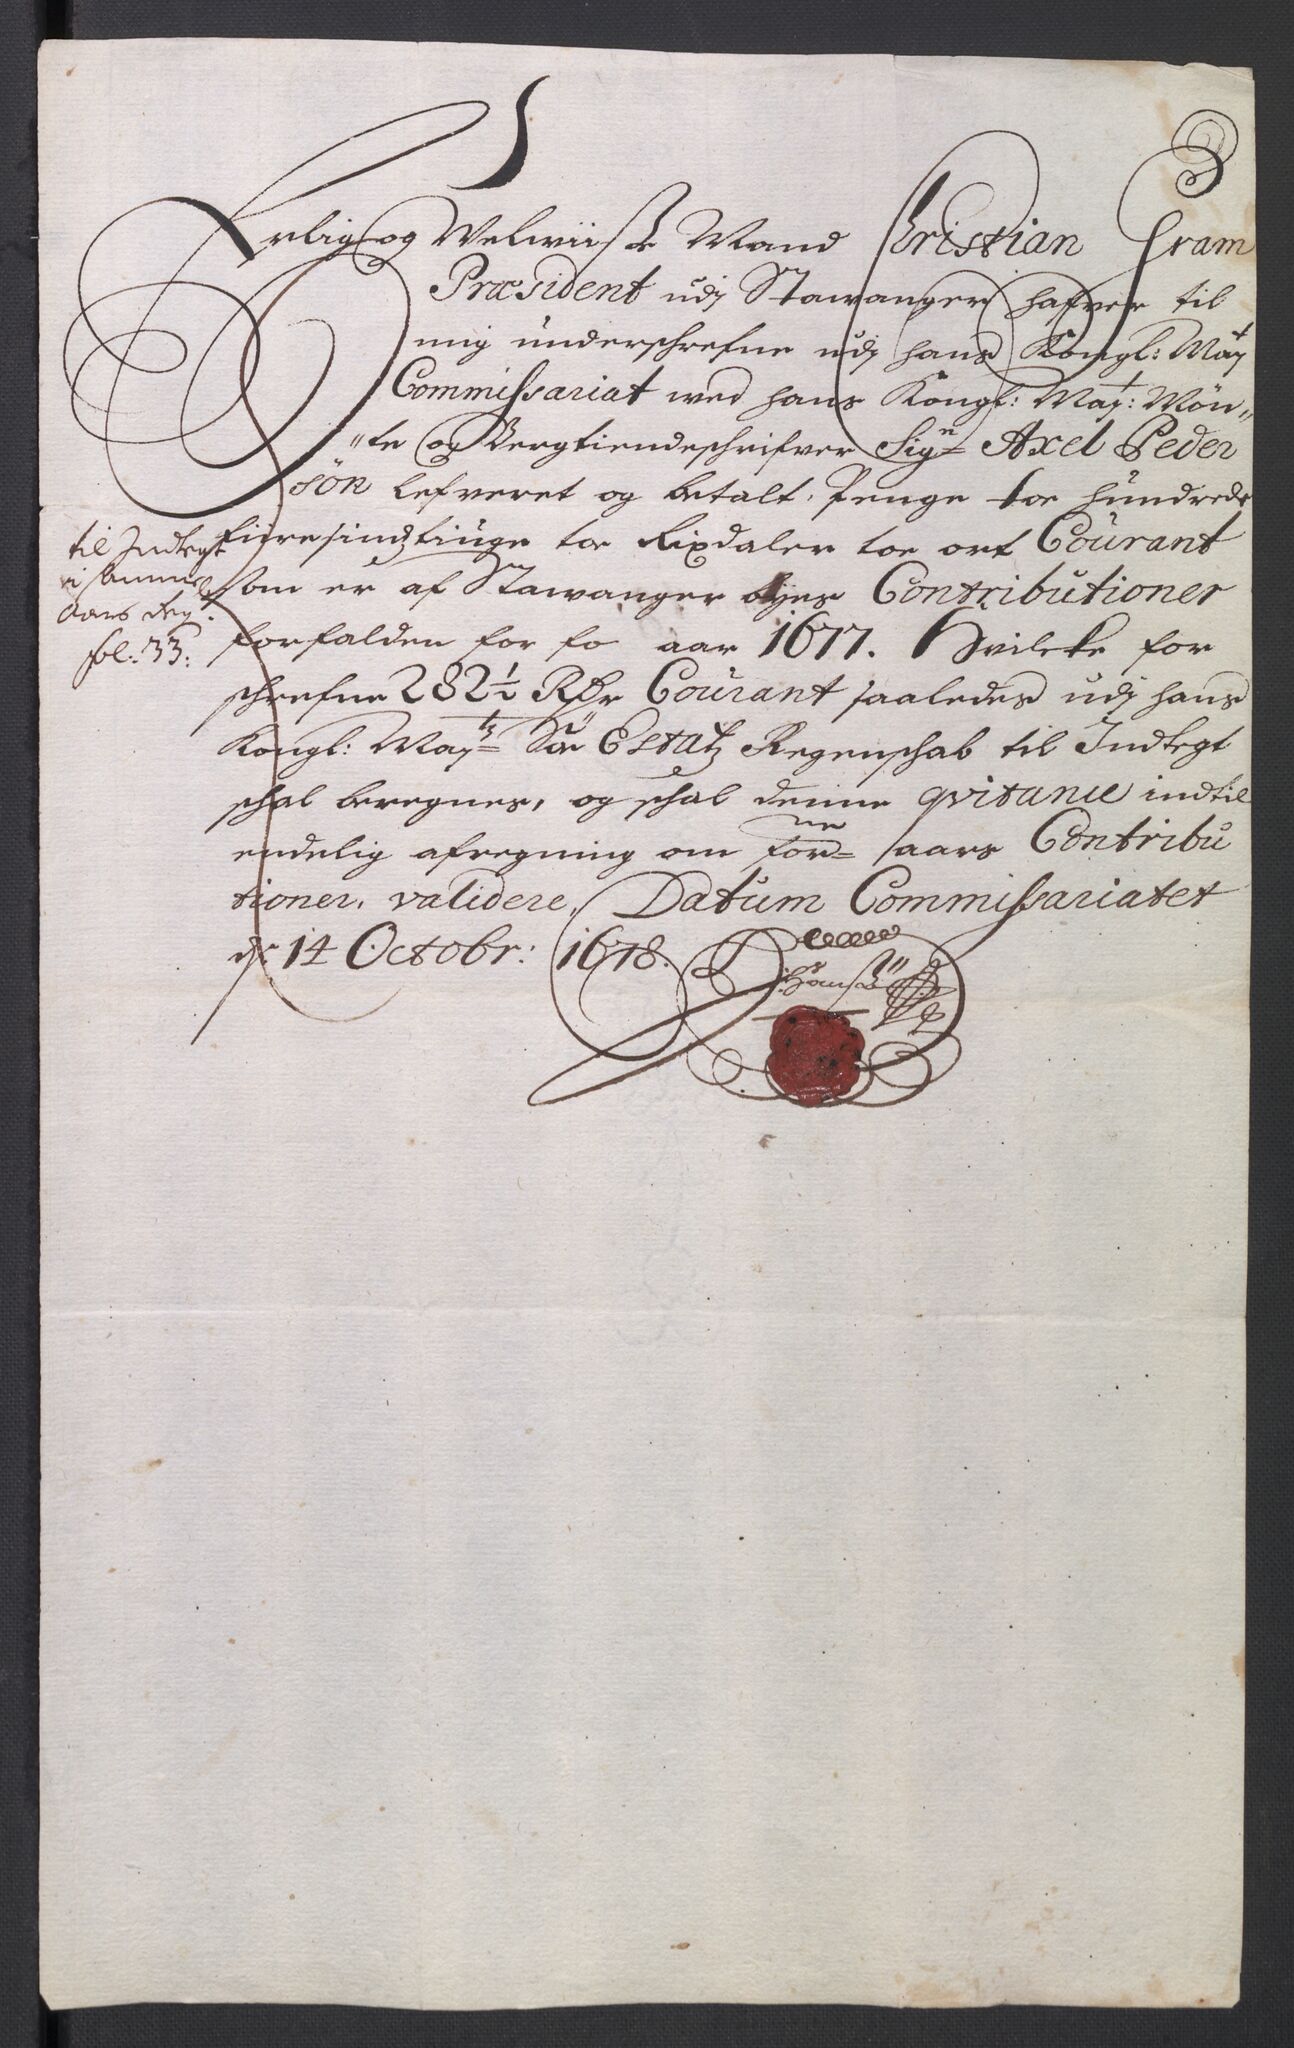 Erlig og Velwiise Mand Christian Fram
Præsident udj Stawanger hafver til
mig underschrefne udj hans Kongl: May:t
Commissariat wed hans Kongl: May:t Mön„
„te og Bergtiendeschrifver Sig:n Axel Peder
sön lefveret og betalt, Penge toe hundrede
fiiresindztiuge toe Rixdaler toe ort Courant
som er af Stawanger byes Contributioner
forfalden for fo aar 1677. Hvilcke for
schrefne 282½ Rdr Courant saaledes udj hans
Kongl: May:tz Söe Estatz Regenschab til Indtegt
schal beregnes, og schal denne qvitance indtil
endelig afregning om for:ne aars Contribu
tioner, validere, Datum Commissariatet
d: 14 Octobr: 1678.
til Indtegt
i samme
Aars Reg:
fol: 33: